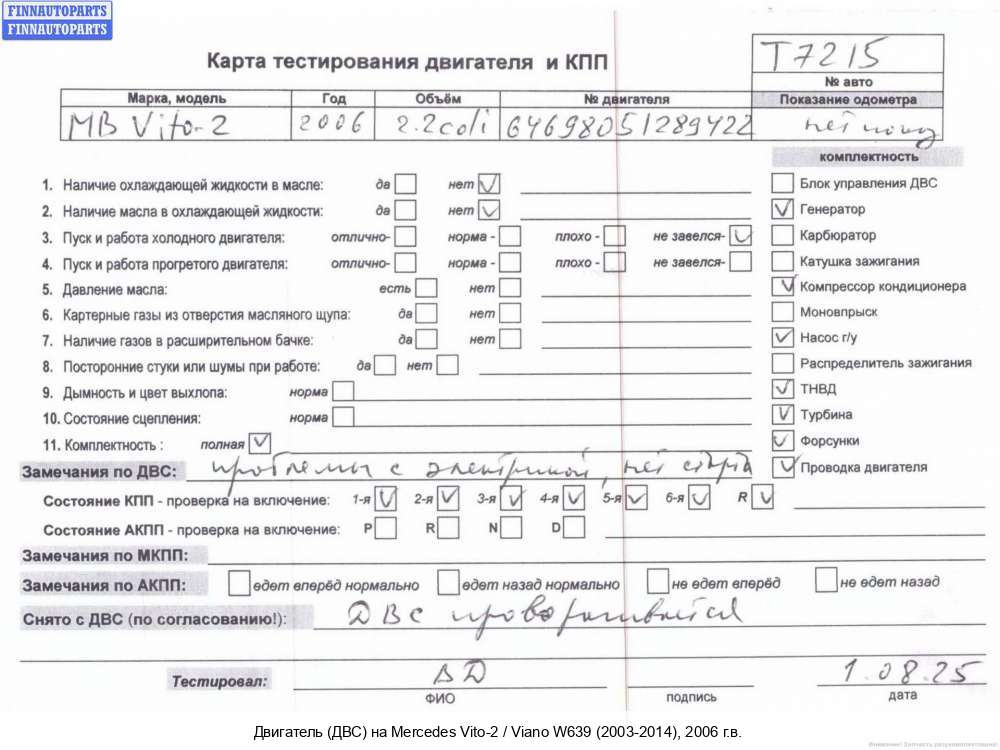 FINNAUTOPARTS
FINNAUTOPARTS
Карта тестирования двигателя и КПП
T7215
№ авто
Марка, модель Год Объём № двигателя Показание одометра
MB Vito-2 2006 2.2cdi 64698051289422 нет
комплектность
1. Наличие охлаждающей жидкости в масле: да нет
Блок управления ДВС
2. Наличие масла в охлаждающей жидкости: да нет
Генератор
3. Пуск и работа холодного двигателя: отлично- норма - плохо - не завелся-
Карбюратор
4. Пуск и работа прогретого двигателя: отлично- норма - плохо - не завелся-
Катушка зажигания
5. Давление масла: есть нет
Компрессор кондиционера
6. Картерные газы из отверстия масляного щупа: да нет
Моновпрыск
7. Наличие газов в расширительном бачке: да нет
Насос г/у
8. Посторонние стуки или шумы при работе: да нет
Распределитель зажигания
9. Дымность и цвет выхлопа: норма
ТНВД
10. Состояние сцепления: норма
Турбина
11. Комплектность : полная
Форсунки
Замечания по ДВС: проблемы с электрикой, нет старта
Проводка двигателя
Состояние КПП - проверка на включение: 1-я 2-я 3-я 4-я 5-я 6-я R
Состояние АКПП - проверка на включение: P R N D
Замечания по МКПП:
Замечания по АКПП: едет вперёд нормально едет назад нормально не едет вперёд не едет назад
Снято с ДВС (по согласованию!): ДВС проворачивается
Тестировал: ВД 1.08.25
ФИО подпись дата
Двигатель (ДВС) на Mercedes Vito-2 / Viano W639 (2003-2014), 2006 г.в.